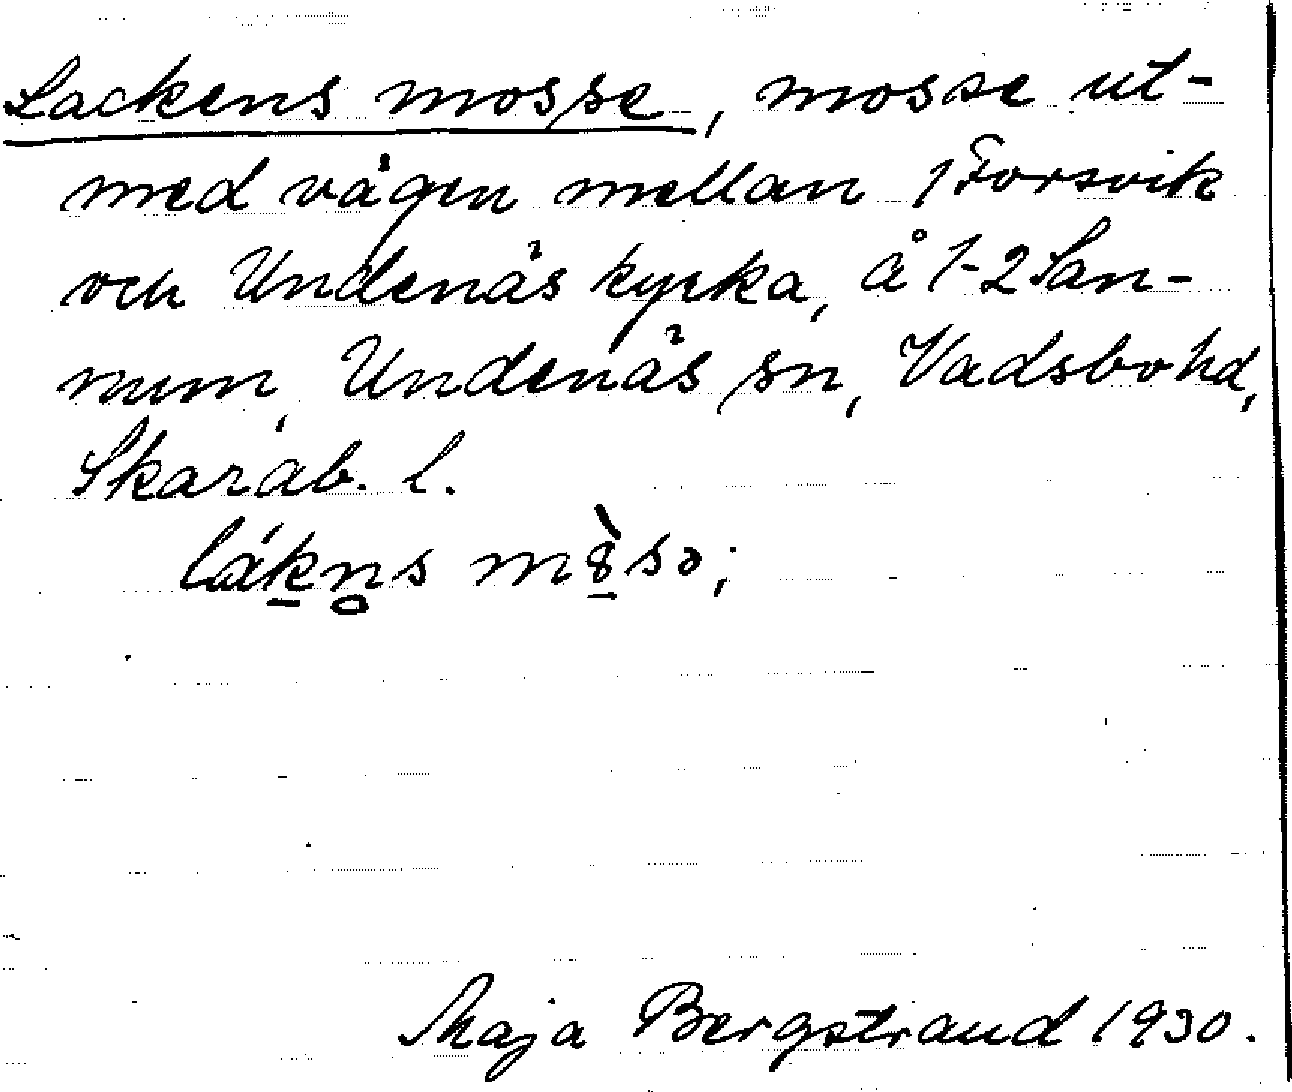 Lackens mosse, mosse ut-
med vägen mellan Forsvik
och Undenäs kyrka, å 1-2 San-
num, Undenäs sn, Vadsbo hd,
Skarab. l.
lák̠n̥s m8̠̀sə;
Maja Bergstrand 1930.